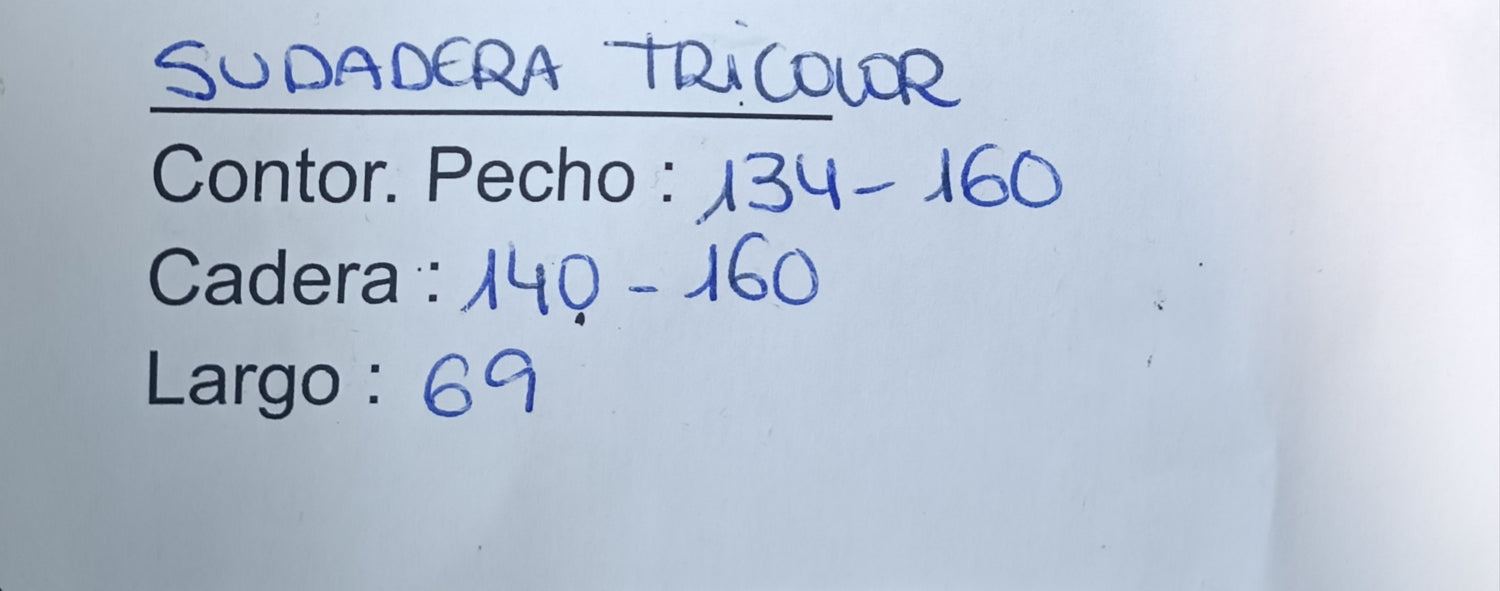 SUDADERA TRICOLOR
Contor. Pecho : 134 - 160
Cadera : 140 - 160
Largo : 69